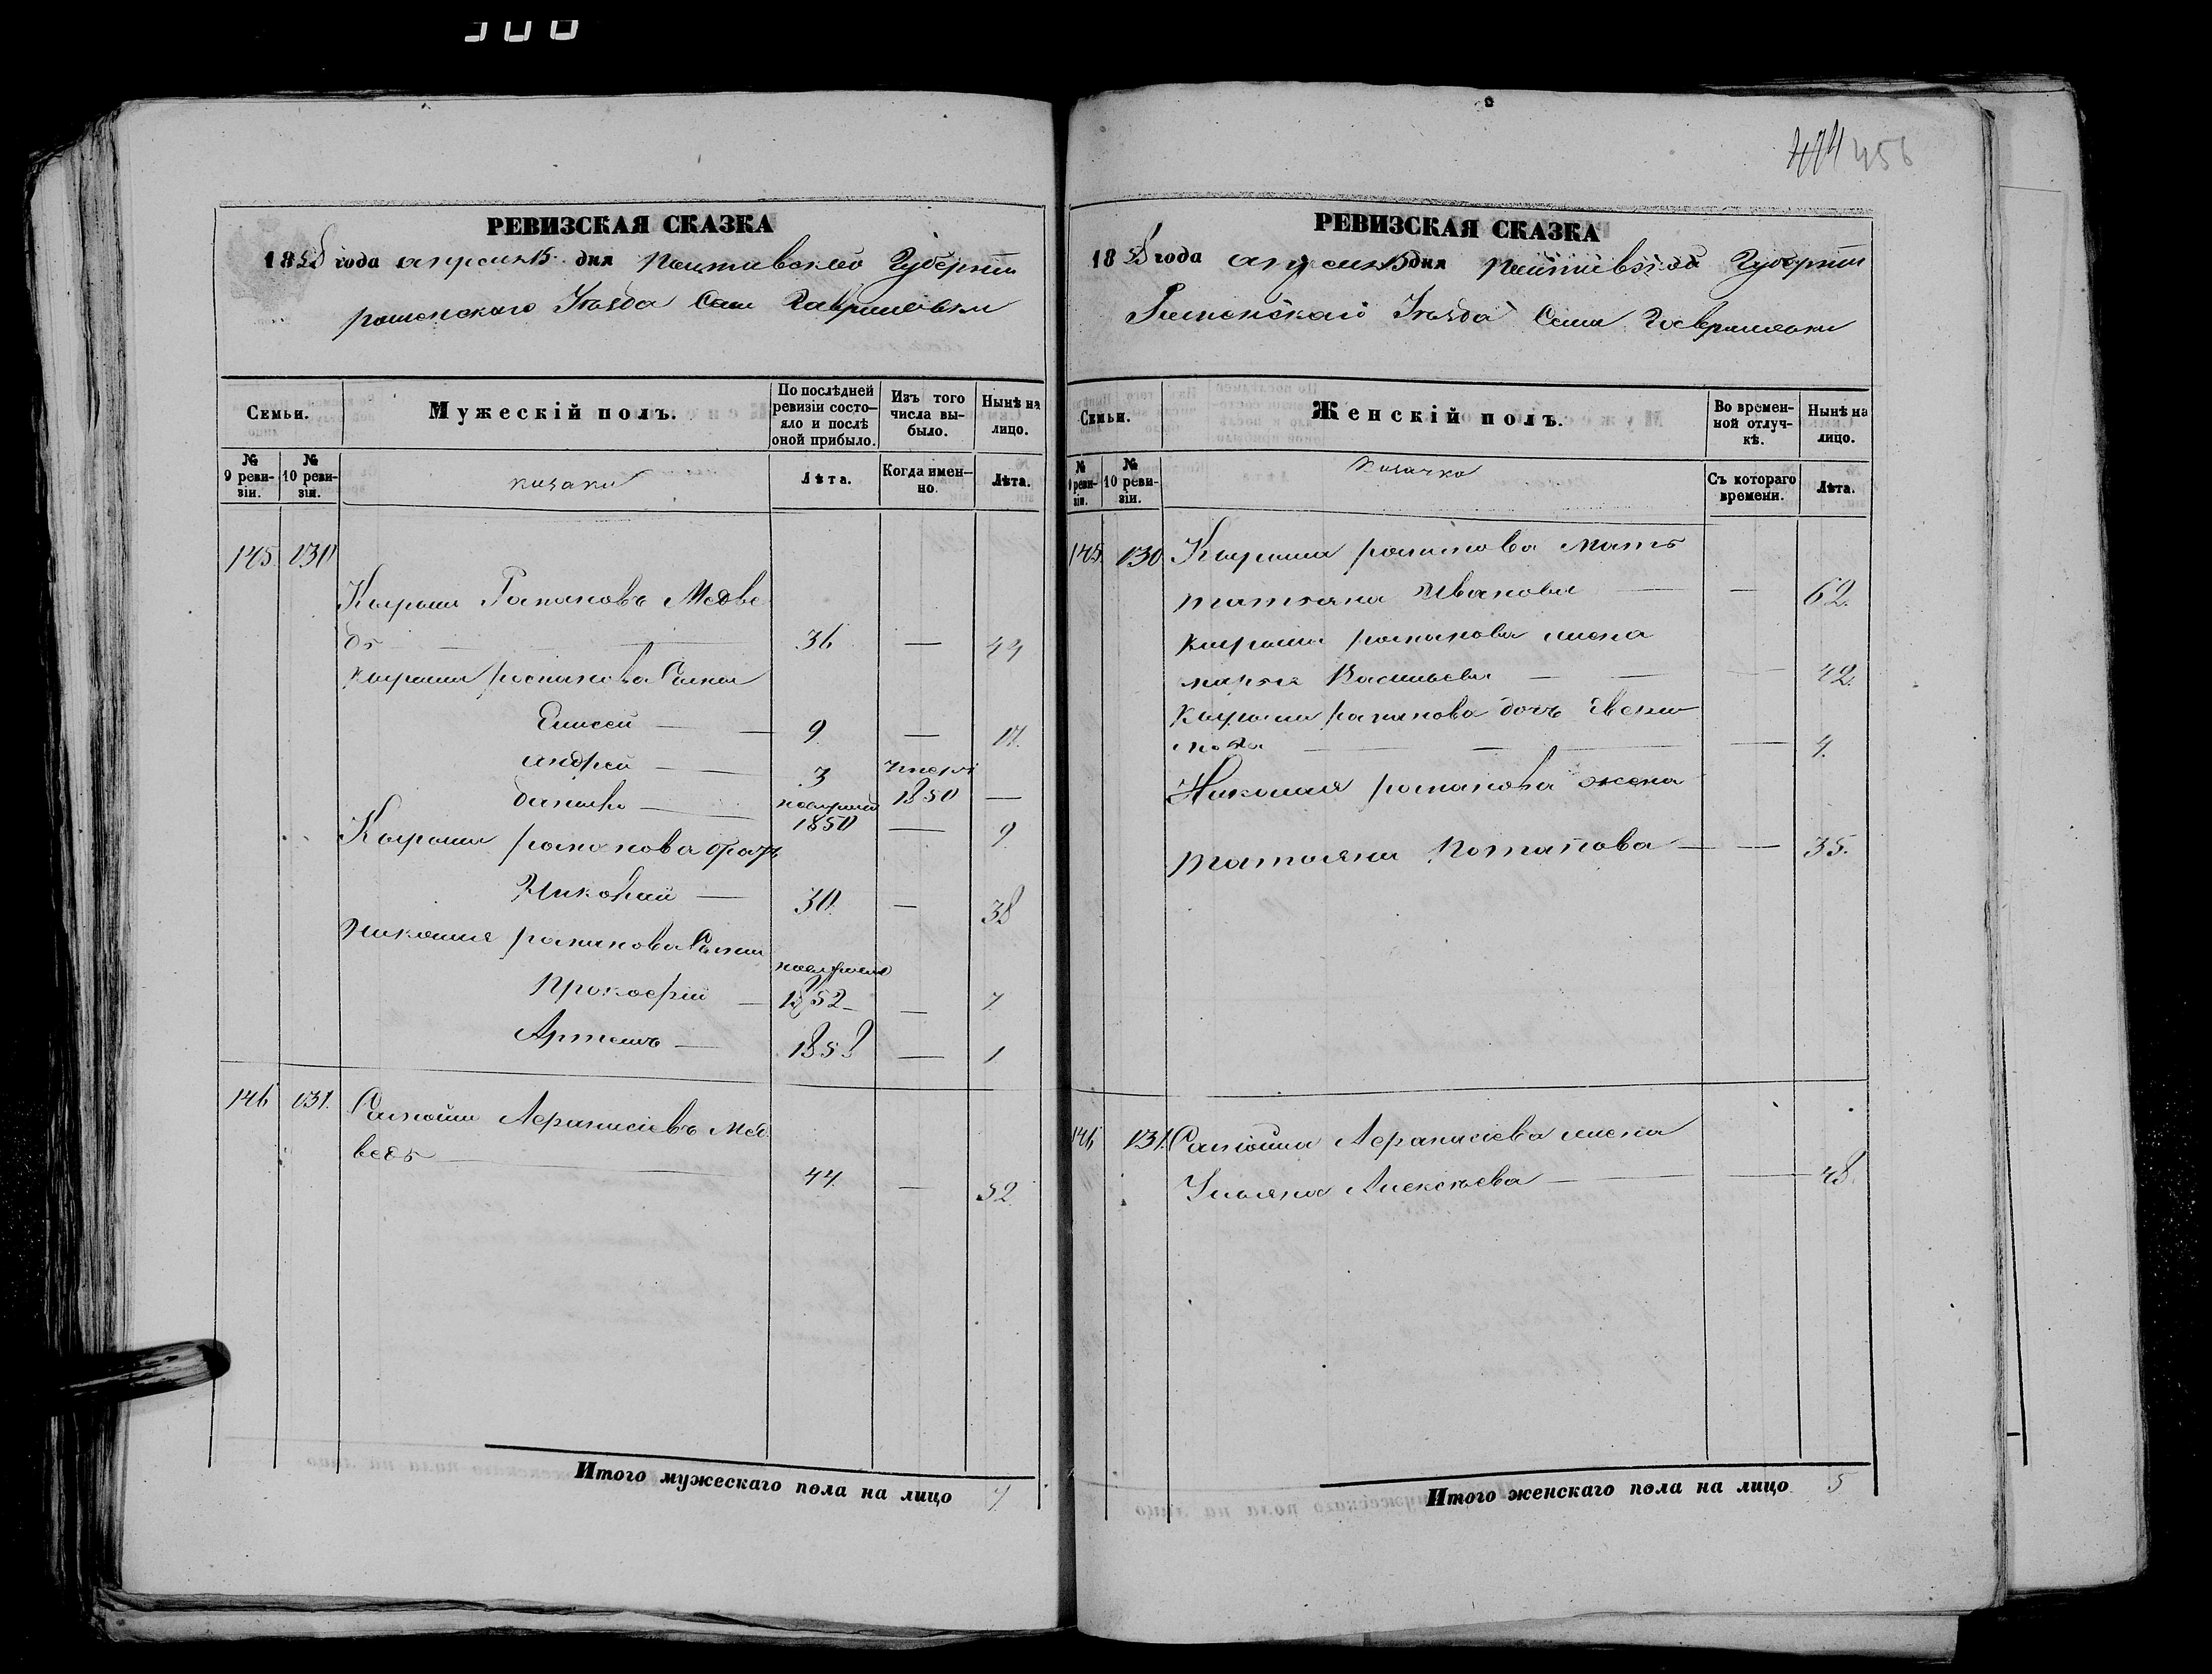 300
474 456
РЕВИЗСКАЯ СКАЗКА
1858 года апреля 15 дня Полтавской Губерніи
роменскаго Уѣзда Села Гавриловки
Семьи.
Мужескій полъ.
По послѣдней ревизіи состо-
яло и послѣ оной прибыло.
Изъ того числа вы-
было.
Нынѣ на лицо.
№ 9 реви-
зіи.
№ 10 реви-
зіи.
казаки
Лѣта.
Когда имен-
но.
Лѣта.
145 130
Романовъ Медве
дь 36 — 44
романова Сыны
Елисей — 9 — 17.
андрей — 3 умеръ 1850 —
данило — послѣ ревиз 1850 — 9
романова братъ
Николай — 30 — 38
Николая романова Сыны
Прокофій — послѣ ревиз 1852 — 7
Артемъ — 1858 — 1
146 131. Самойла Афанасіевъ Мед
ведь 44 — 52
Итого мужескаго пола на лицо 7
РЕВИЗСКАЯ СКАЗКА
1858 года апреля 15 дня Полтавской Губерніи
Роменскаго Уѣзда Села Гавриловки
Семьи.
Женскій полъ.
Во времен-
ной отлуч-
кѣ.
Нынѣ на лицо.
№ 9 реви-
зіи.
№ 10 реви-
зіи.
казачки
Съ котораго времени.
Лѣта.
145. 130 романова мать
татьяна Иванова — — 62.
романова жена
марья Васильева — — 42.
романова дочь
— — 4.
Николая романова жена
татьяна Потапова — — 35.
146 131. Самойла Афанасіева жена
Ульяна Алексѣева — — 48.
Итого женскаго пола на лицо 5